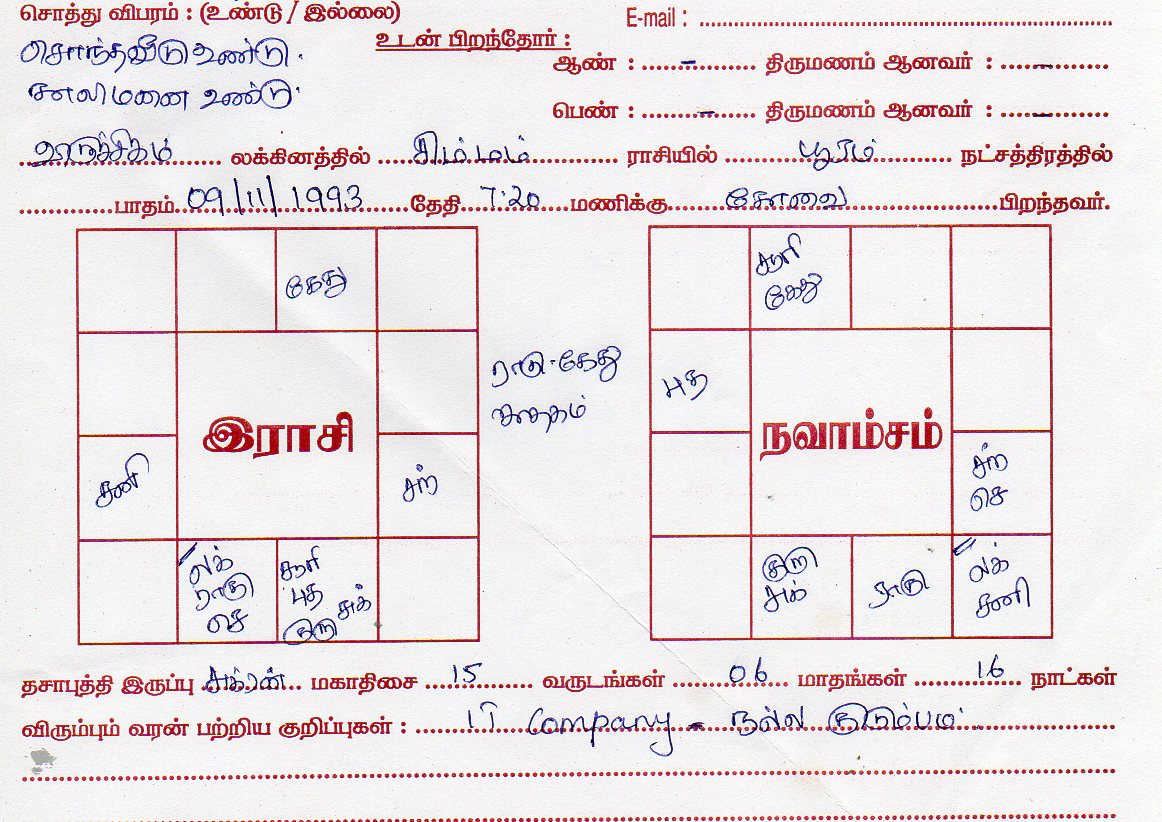 சொத்து விபரம் : (உண்டு / இல்லை)
E-mail : ..........
சொந்தவீடு உண்டு.
உடன் பிறந்தோர் :
ஆண் : ..... – ..... திருமணம் ஆனவர் : ..... – .....
காலிமனை உண்டு.
பெண் : ..... – ..... திருமணம் ஆனவர் : ..... – .....
விருச்சிகம் லக்கினத்தில் சிம்மம் ராசியில் பூரம் நட்சத்திரத்தில்
..........பாதம் 09/11/1993 தேதி 7.20 மணிக்கு கோவை பிறந்தவர்.
கேது
இராசி
சனி
சந்
லக்
ராகு
செ
சூரி
புத
சுக்
குரு
ராகு-கேது
ஜாதகம்
சூரி
கேது
புத
நவாம்சம்
சந்
செ
குரு
சுக்
ராகு
லக்
சனி
தசாபுத்தி இருப்பு சுக்ரன் மகாதிசை 15 வருடங்கள் 06 மாதங்கள் 16 நாட்கள்
விரும்பும் வரன் பற்றிய குறிப்புகள் : IT Company - நல்ல குடும்பம்